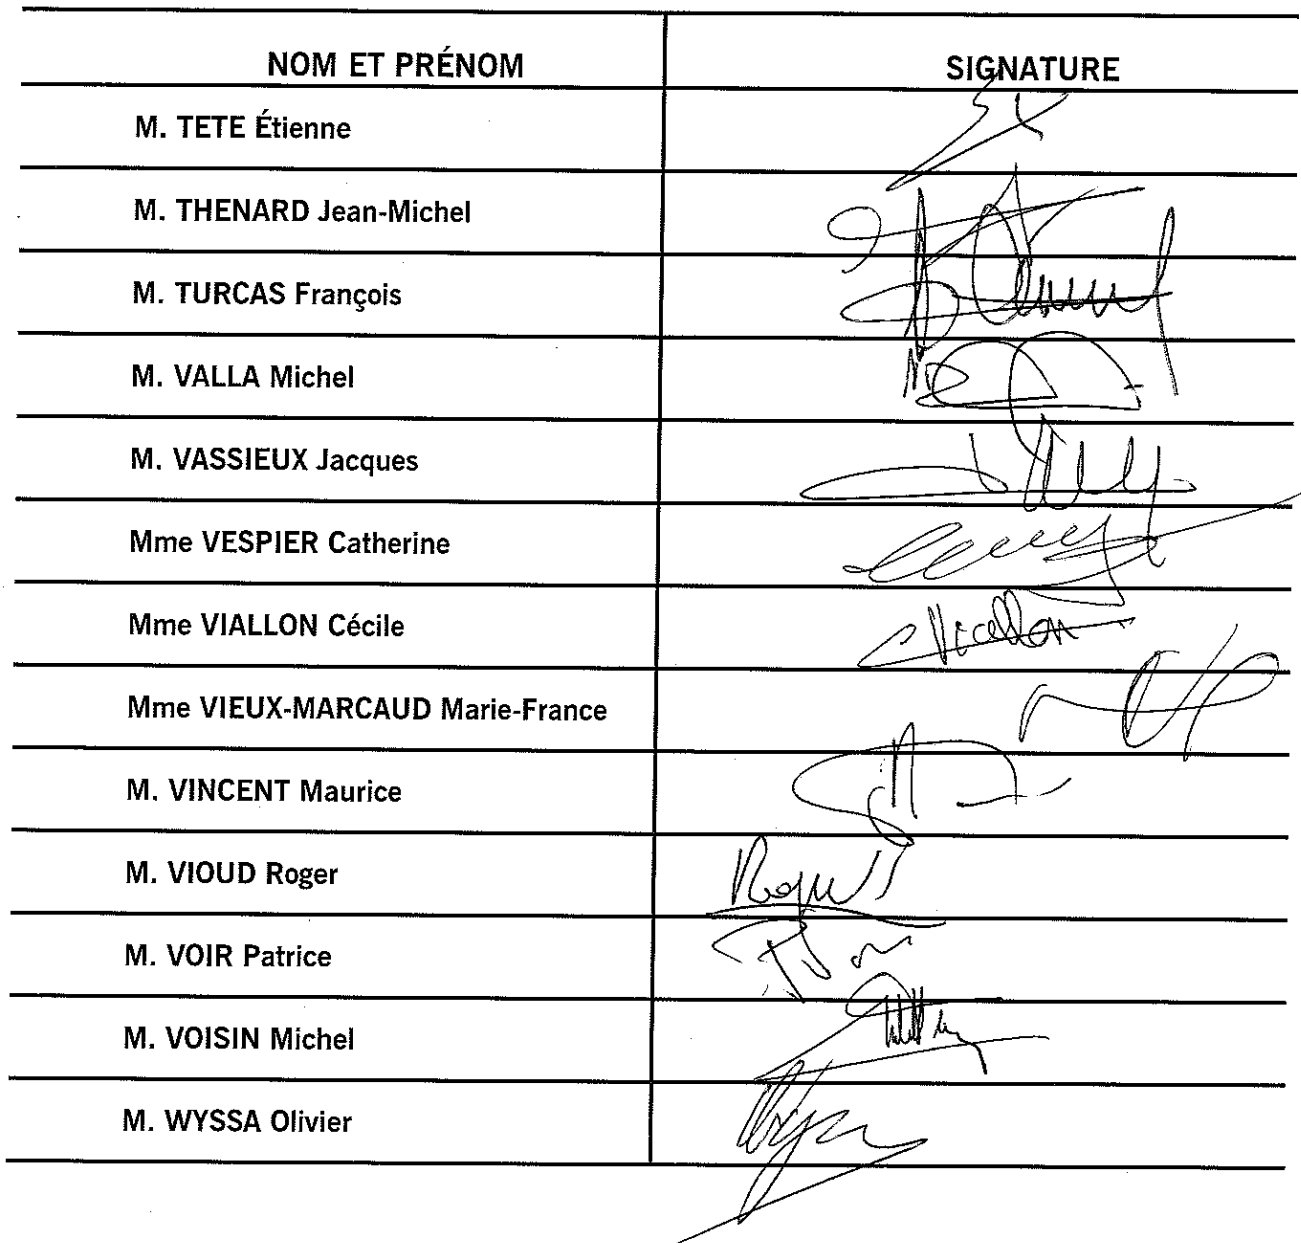 NOM ET PRÉNOM SIGNATURE
M. TETE Étienne
M. THENARD Jean-Michel
M. TURCAS François
M. VALLA Michel
M. VASSIEUX Jacques
Mme VESPIER Catherine
Mme VIALLON Cécile Viallon
Mme VIEUX-MARCAUD Marie-France
M. VINCENT Maurice
M. VIOUD Roger
M. VOIR Patrice
M. VOISIN Michel
M. WYSSA Olivier